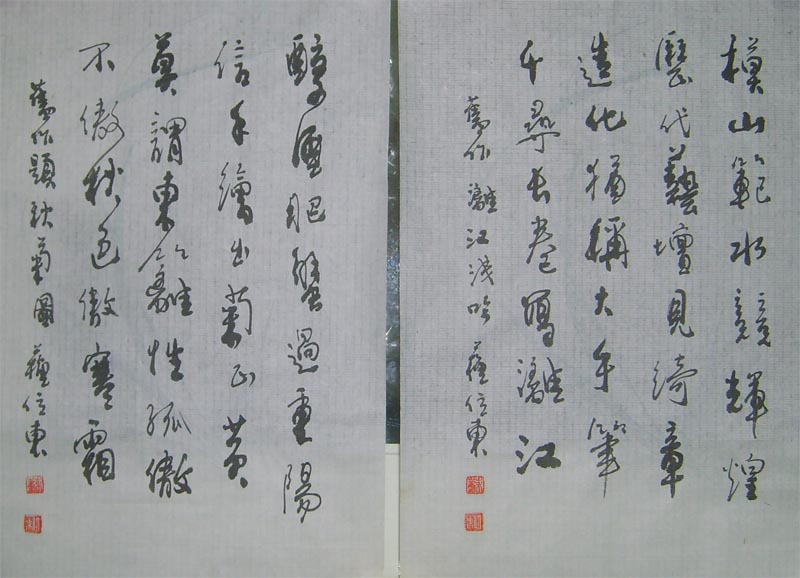 模山範水競輝煌
歷代藝壇見綺章
造化猶稱大手筆
千尋長卷寫灕江
舊作 灕江淺吟 蘇信東
醇酒肥蟹過重陽
信手繪出菊正黄
莫謂東籬性孤傲
不傲秋色傲寒霜
舊作題秋菊圖 蘇信東